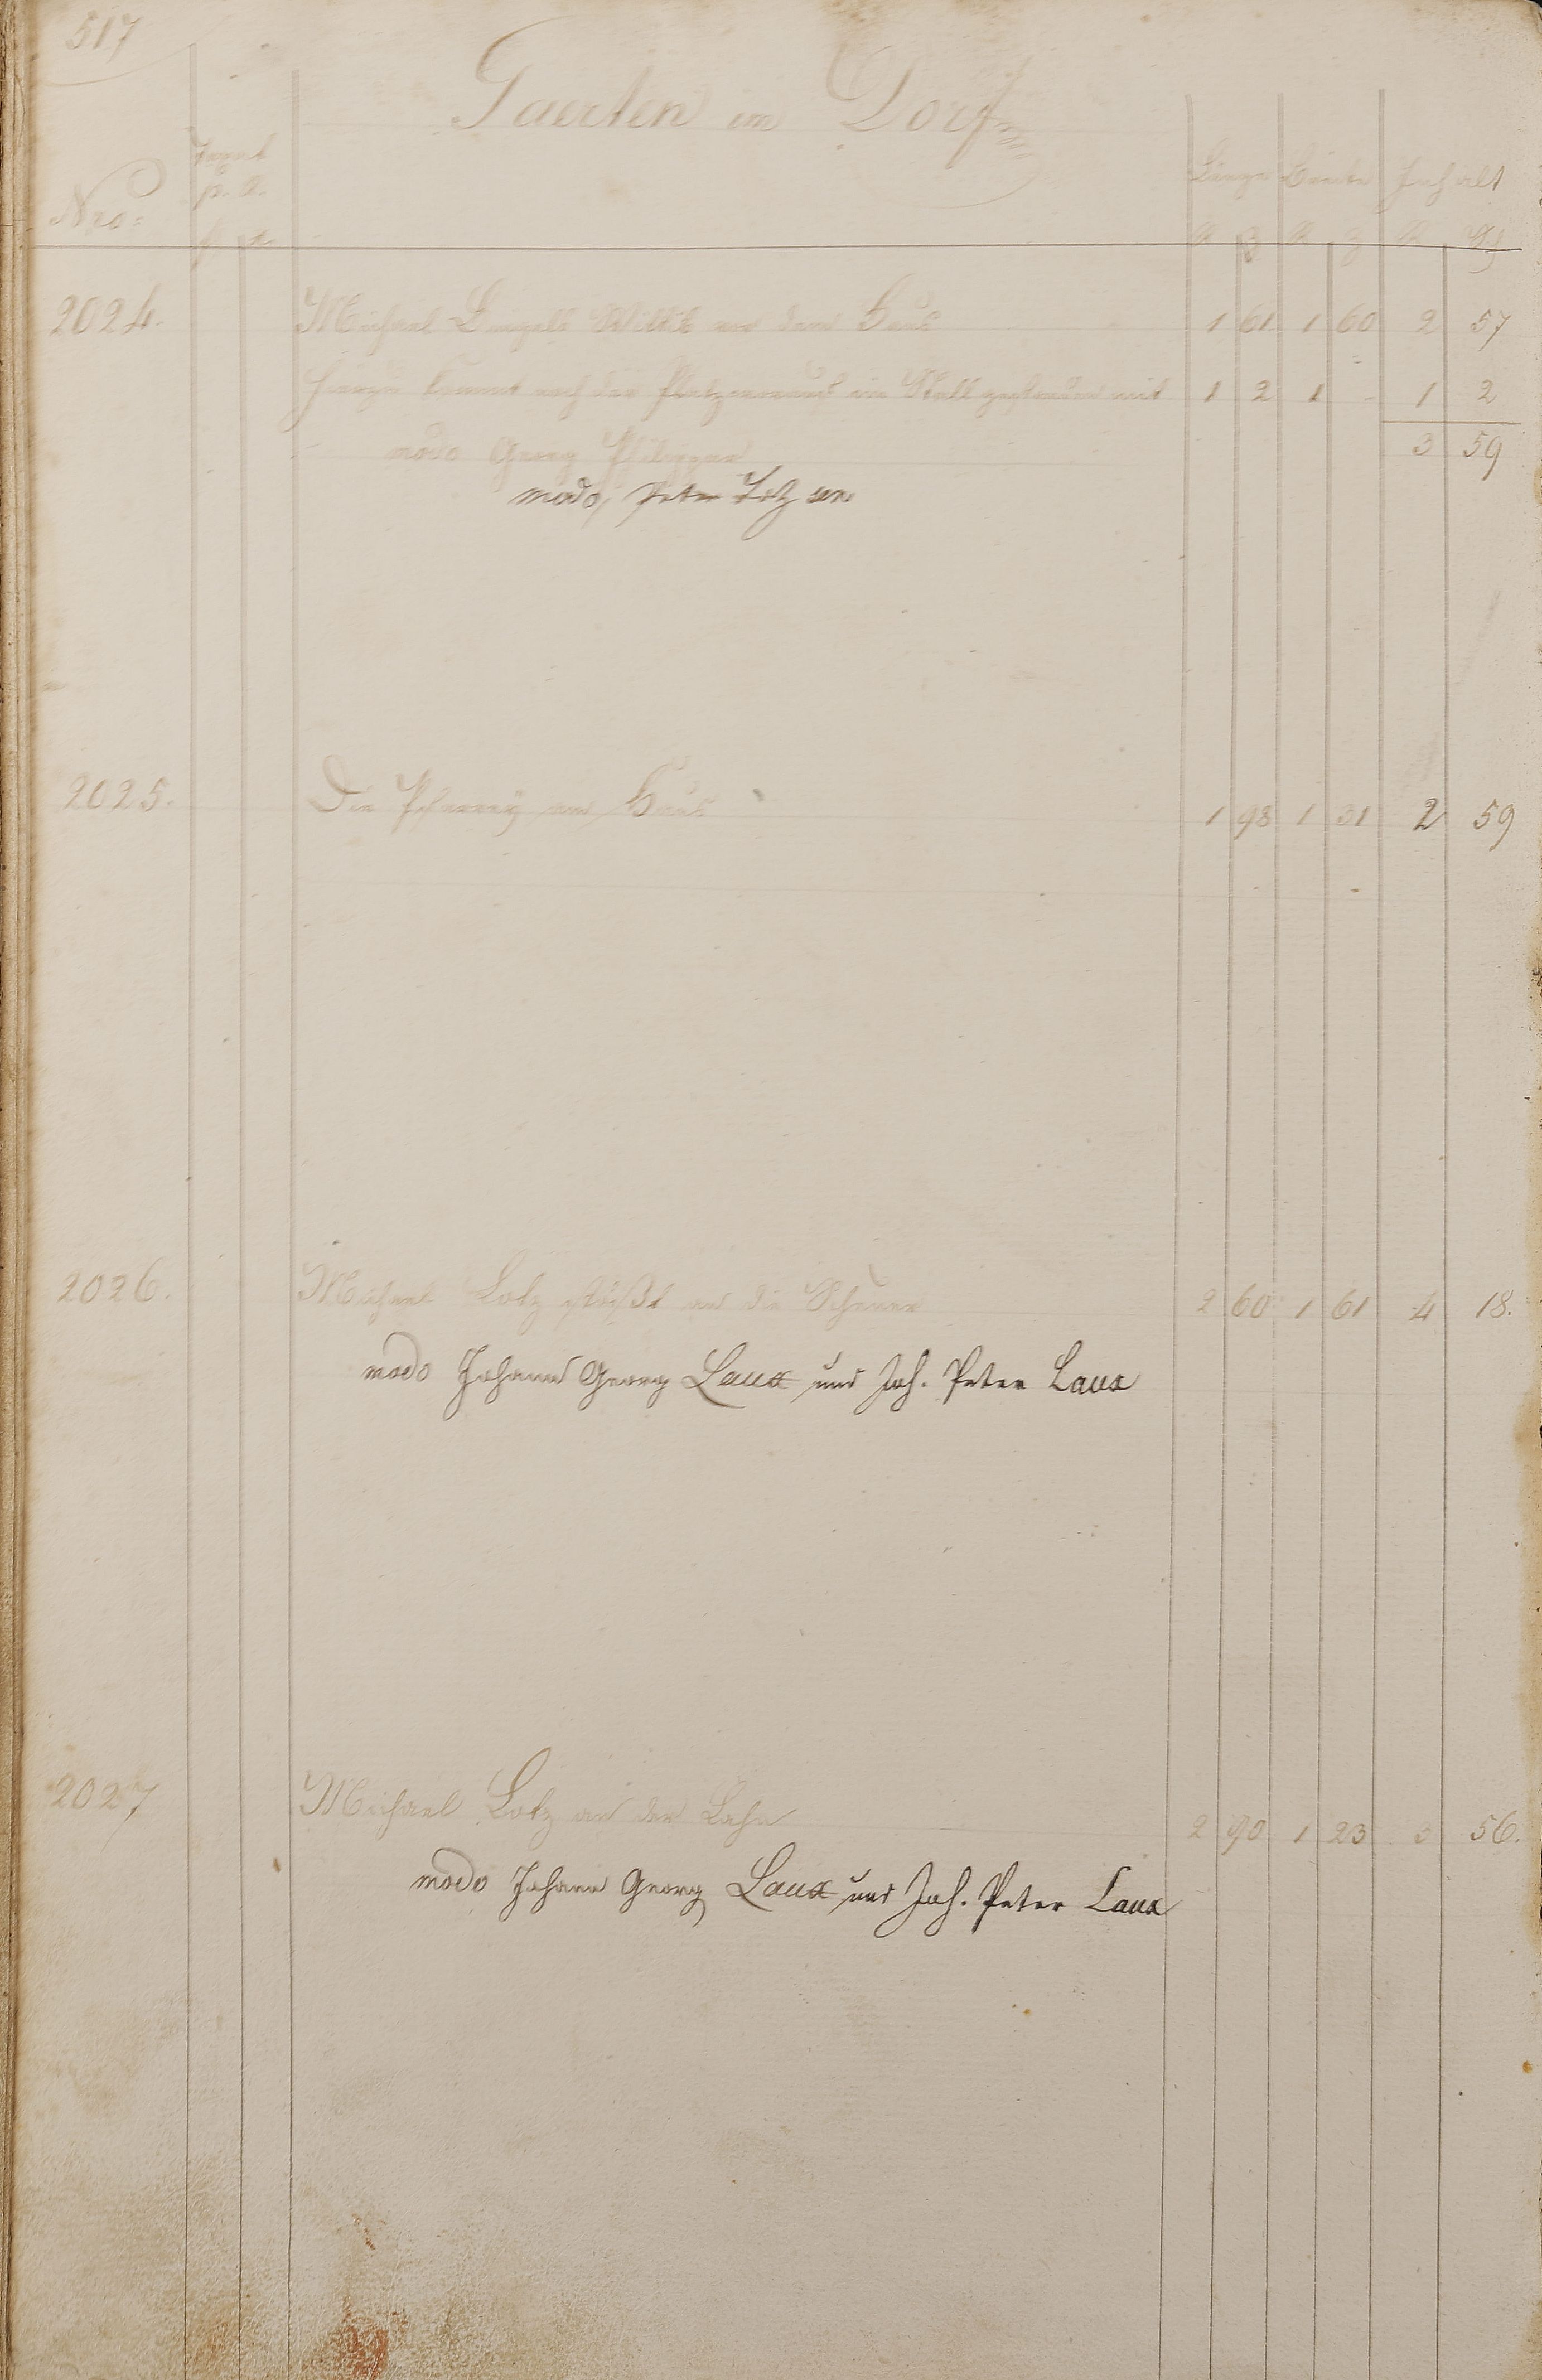 517
Gaerten im Dorf
Nro:
Länge Breite Inhalt
2024. Michael Wittib vor dem Haus 1 61 1 60 2 57
Hierzu kommt noch der Platz worauf ein Stall gestanden mit 1 2 1 - 1 2
modo Georg Philippus 3 59
modo, Peter
2025. Die Pfarrey am Haus 1 98 1 31 2 59
2026. Michael Lotz stößt an die Scheuer 2 60 1 61 4 18.
modo Johann Georg Laux und Joh. Peter Laux
2027 Michael Lotz an der Lahn 2 90 1 23 3 56.
modo Johann Georg Laux und Joh. Peter Laux